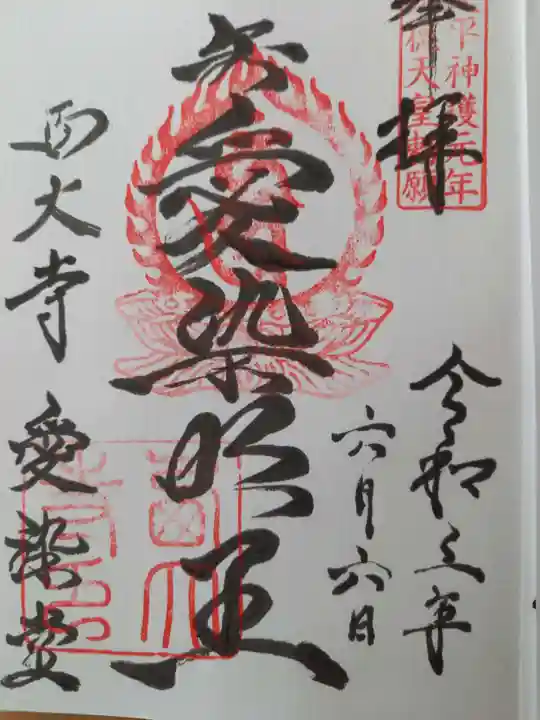 奉拝
平神護元年
徳天皇勅願
令和三年
六月六日
愛染明王
西大寺 愛染堂